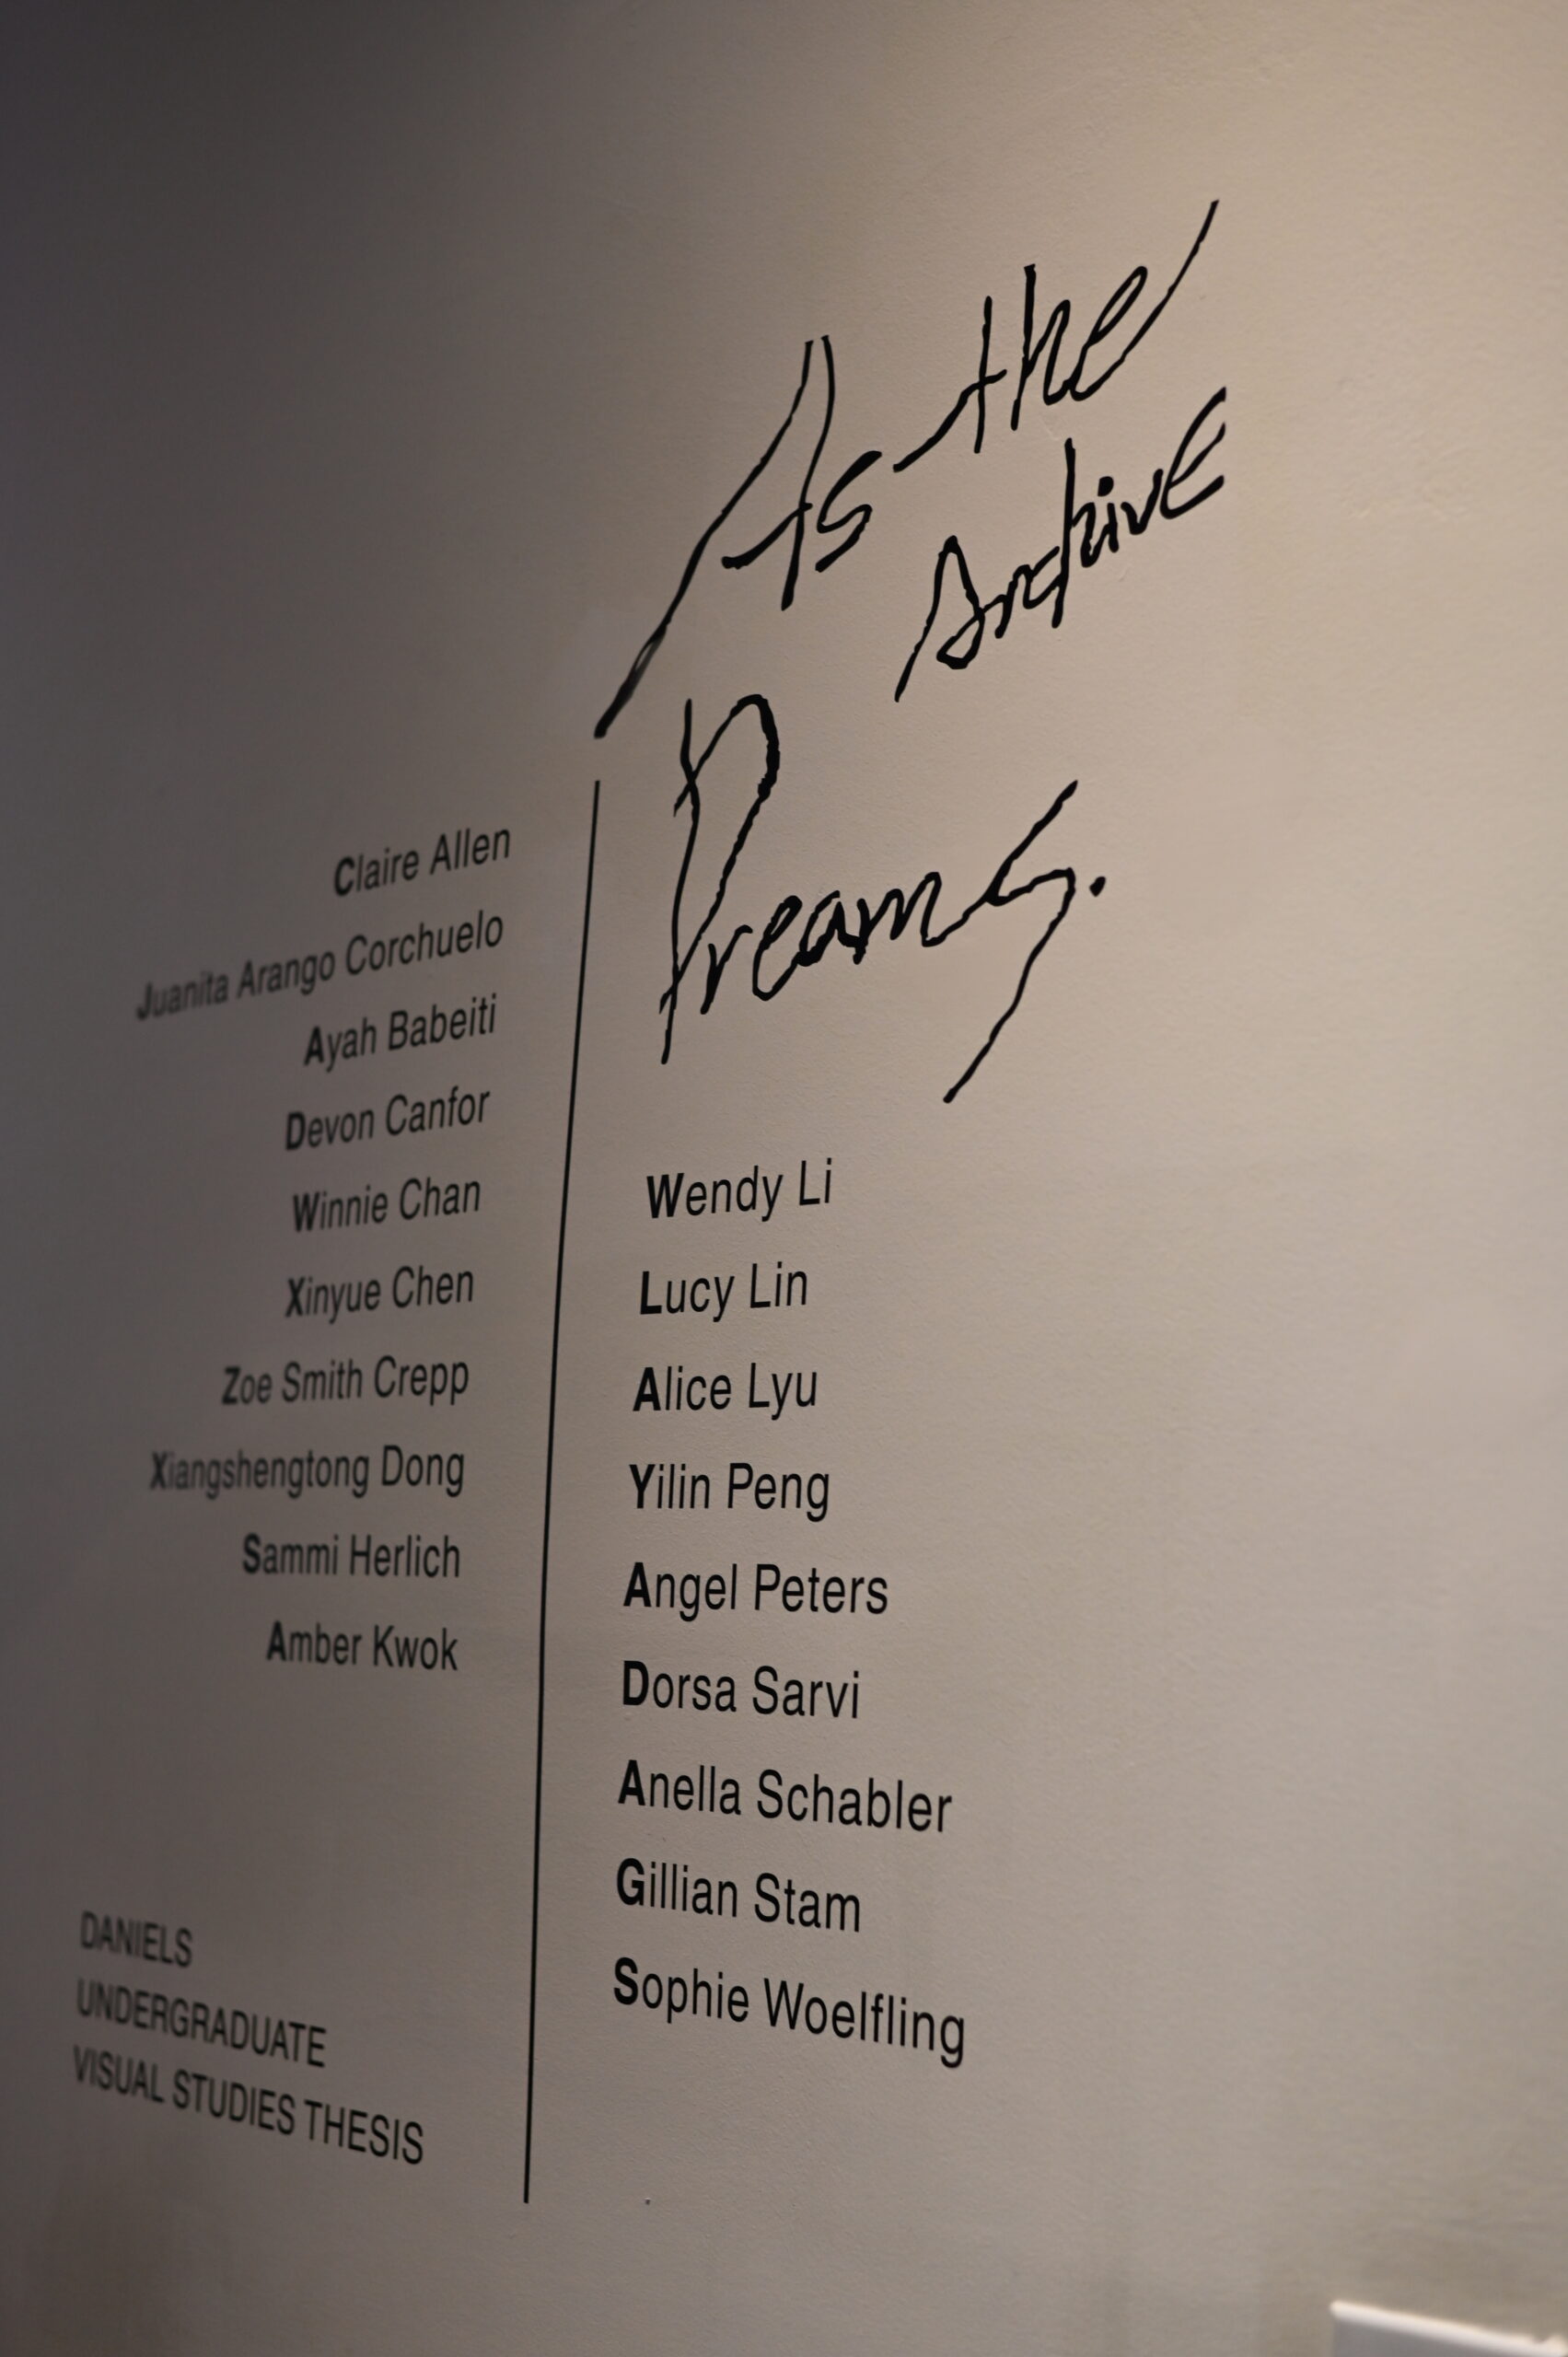 As the
Archive
Dreams.
Claire Allen
Juanita Arango Corchuelo
Ayah Babeiti
Devon Canfor
Winnie Chan
Xinyue Chen
Zoe Smith Crepp
Xiangshengtong Dong
Sammi Herlich
Amber Kwok
Wendy Li
Lucy Lin
Alice Lyu
Yilin Peng
Angel Peters
Dorsa Sarvi
Anella Schabler
Gillian Stam
Sophie Woelfling
DANIELS
UNDERGRADUATE
VISUAL STUDIES THESIS